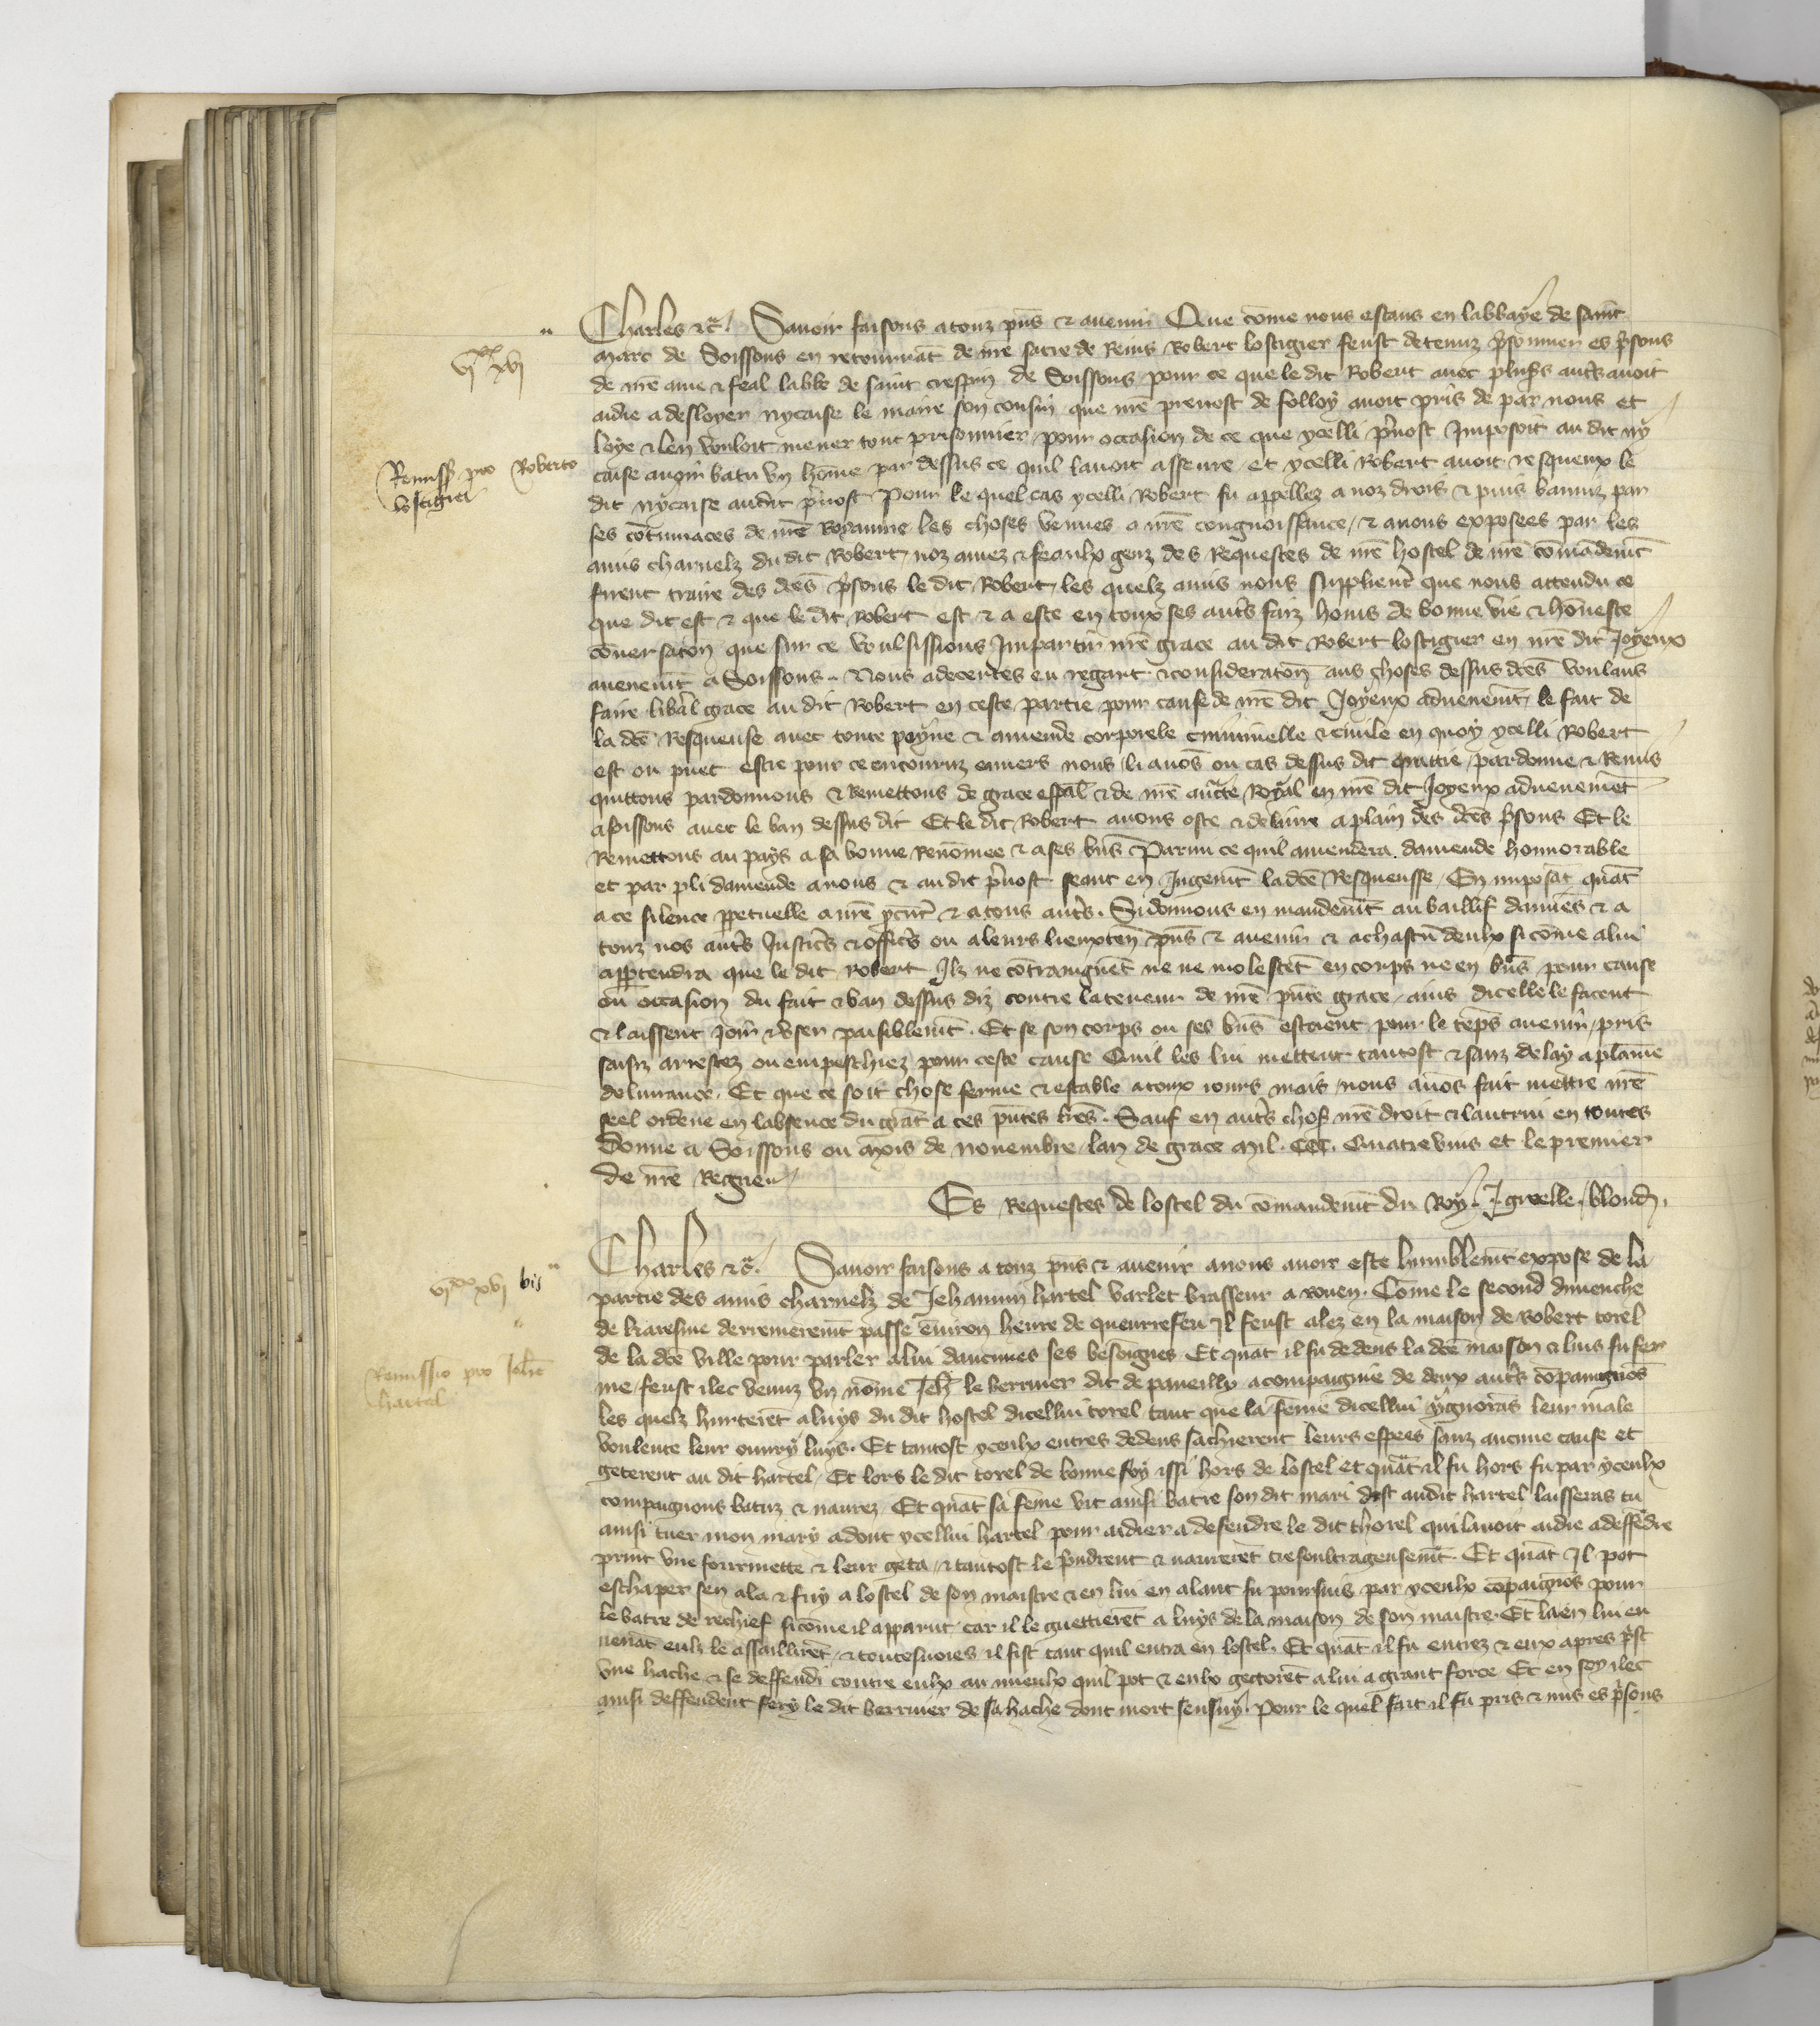 Charles &c̃. Sauoir faisons a touz pn̄s & auenir Que cōme nous estans en labbaye de saint
vjxx xvj
marc de Soissons en retournāt de nr̄e sacre de Reins Robert lostigier feust detenuz p̄sonnier es p̄sons
de nr̄e ame & feal labbe de saint crespin de Soissons pour ce que le dit Robert auec plus̄s aut̄s auoit
aidie a desloyer nycaise le maire son cousin que nr̄e preuost de folloy auoit pris de par nous et
loye & len vouloit mener tout prisonnier pour occasion de ce que ycelli p̄uost Imposoit au dit ny
Remiss̄ pro Roberto
lostigier
caise auoir batu vn hōme par dessus ce quil lauoit asseure et ycelli Robert auoit resqueux le
dit nycaise audit p̄uost Pour le quel cas ycelli Robert fu appellez a noz drois & puis banniz par
ses cōtumaces de nr̄e Royaume les choses venues a nr̄e congnoissance / & a nous exposees par les
amis charnelz du dit Robert, noz amez & feaulx genz des Requestes de nr̄e hostel de nr̄e cōmādemt̄
firent traire des dc̄es p̄sons le dit Robert / les quelz amis nous supplient̄ que nous attendu ce
que dit est & que le dit Robert est & a este en toux ses aut̄s faiz homs de bonne vie & hōneste
cōuersatōn que sur ce voulsissions Impartir nr̄e grace au dit Robert lostigier en nr̄e dit Joyeux
auenemt̄ a Soissons. Nous adecertes eu regart & consideratōn aus choses dessus dc̄es voulans
faire liberāl grace au dit Robert en ceste partie pour cause de nr̄e dit Joyeux aduenemt̄ le fait de
la dc̄e Resqueuse auec toute peyne & amende corporele criminelle & ciuile en quoy ycelli Robert
est ou puet estre pour ce encouruz enuers nous li auōs ou cas dessus dit quittie / pardonne & Remis
quittons pardonnons & Remettons de grace esp̄al & de nr̄e auct̄e Royal en nr̄e dit Joyeux aduenemēt
a soissons auec le ban dessus dit Et le dit Robert auons oste & deliure a plain des dc̄es p̄sons Et le
Remettons au pays a sa bonne Renōmee & a ses biēs Parmi ce quil amendera damende honnorable
et par pli damende a nous & au dit p̄uost seant en Jugemt̄ la dc̄e Resqueusse / En imposāt quāt
a ce silence pp̄etuelle a nr̄e p̄cur̄ & a tous aut̄s. Si donnons en mandemt̄ au baillif damiēs & a
touz nos aut̄s Justic̄s & offic̄s ou a leurs lieuxten̄ pn̄s & auenir & a chascū deulx si cōme a lui
app̄tendra que le dit Robert Ilz ne cōtraingnēt ne ne molestēt en corps ne en biēs pour cause
ou occasion du fait & ban dessus diz contre la teneur de nr̄e pn̄te grace / ains dicelle le facent
& laissent Joir & vser paisiblemt̄. Et se son corps ou ses biēs estoient pour le tēps auenir / pris
saisiz arrestez ou empeschiez pour ceste cause Quil les lui mettent tantost & sanz delay a plaine
deliurance. Et que ce soit chose ferme & estable a touz iours mais / nous auōs fait mettre nr̄e
seel ordene en labsence du grāt a ces pn̄tes lr̄es. Sauf en aut̄s chos̄ nr̄e droit & lautrui en toutes
Donne a Soissons ou mois de nouembre lan de grace mil. CCC. Quatrevins et le premier
de nr̄e Regne
Es Requestes de lostel du cōmandemt̄ du Roy. J. greelle. blond̄.
Charles &c̃. Sauoir faisons a touz pn̄s & auenir a nous auoir este humblemt̄ expose de la
vjxx xvj bis
partie des amis charnelz de Jehannin hartel varlet brasseur a rouen. Cōme le second dimenche
de karesme derreneremt̄ passe ēuiron heure de queurrefeu Il feust alez en la maison de Robert torel
de la dc̄e ville pour parler a lui daucunes ses besoignes Et quāt il fu dedens la dc̄e maison & luis fu fer
Remissio pro Joh̄e
hartel
me / feust ilec venuz vn nōme Jeh̄ le berruier dit de paueilly acompaignie de deux aut̄s cōpaingnōs
les quelz hurterēt a luys du dit hostel dicellui torel tant que la fēme dicellui ygnorās leur male
voulente leur ouury luys. Et tantost yceulx entres dedens sachierent leurs espees sanz aucune cause et
geterent au dit hartel / Et lors le dit torel de bonne foy issi hors de lostel et quāt il fu hors fu par yceulx
compaignons batuz & naurez / Et quāt sa fēme vit ainsi batre son dit mari dist audit hartel laisseras tu
ainsi tuer mon mary adont ycellui hartel pour aidier a defendre le dit thorel qui lauoit aidie a deffēdre
print vne fourmette & leur geta / & tantost le p̄ndrent & naurerēt tresoultrageusemt̄. Et quāt Il pot
eschaper sen ala & fuy a lostel de son maistre & en lui en alant fu poursuis par yceulx cōpaignōs pour
le batre de rechief si cōme il apparut car il le guettierēt a luys de la maison de son maistre. Et la en lui en
uenāt eulx le assaillirēt / & toutesuoies il fist tant quil entra en lostel. Et quāt il fu entrez & eux apres p̄st
vne hache & se deffendi contre eulx au mieulx quil pot & eulx getterēt a lui a grant force Et en soy ilec
ainsi deffendent fery le dit berruier de sa hache dont mort sensuy. Pour le quel fait il fu pris & mis es p̄sons